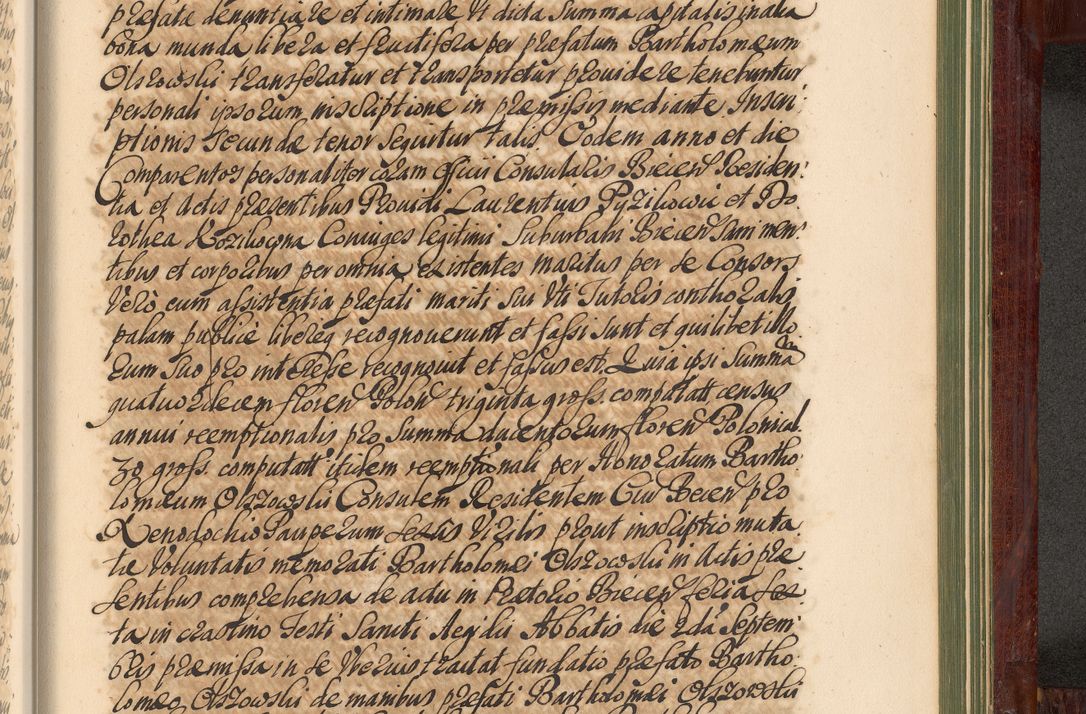 præfatæ denuntiare et intimare Vt dicta Summa capitalis in alia
bona munda libera et fructifera per præfatum Bartholomæum
Olszowski transferatur et transportetur prouidere tenebuntur
personali ipsorum inscriptione in præmissis mediante. Inscri-
ptionis Secundæ tenor Sequitur talis. Eodem anno et die
Comparentes personaliter coram Officii Consularis Biecen̄ Residen:
tia et Actis præsentibus Prouidi Laurentius Pyzikowic et Do
rothea Kozikocona Coniuges legitimi Suburbani Biecen̄ Sani men:
tibus et corporibus per omnia existentes Maritus per se Consors
Verò cum assistentia præfati mariti Sui Vti Tutoris conthoralis
palam publicè libereq recognouerunt et fassi sunt et quilibet illo
rum Suo pro interesse recognouit et fassus est. Quia ipsi Summam
quatuordecem floren̄ Polon̄ triginta gross. computatt census
annui reemptionalis pro Summa ducentorum floren̄ Polonical.
30 gross. computatt itidem reemptionali per Honoratum Bartho:
lomæum Olszowski Consulem Residentem Ciu Biecen̄ pro
Xenodochio Pauperum Sexus Virilis prout inscriptio muta
tæ Voluntatis memorati Bartholomæi Olszowski in Actis præ
sentibus comprehensa de actu in Prætorio Biecen̄ feria Sex
ta in crastino Festi Sancti Aegidii Abbatis die 2da Septem:
bris præmissa in se Vberius tractat fundatio præfato Bartho:
lomæo Olszowski de manibus præfati Bartholomæi Olszowski